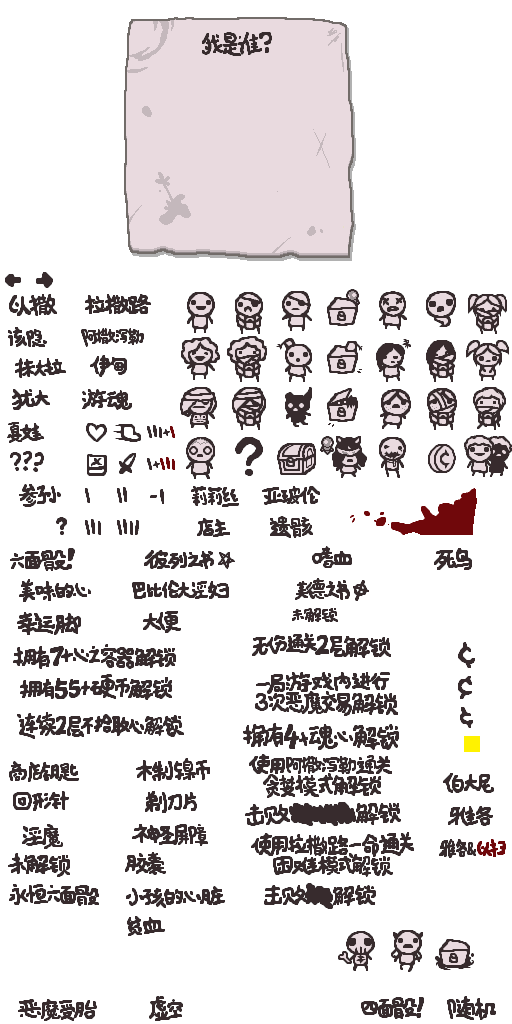 我是谁?
以撒 拉撒路
该隐 阿撒泻勒
抹大拉 伊甸
犹大 游魂
夏娃
???
参孙 莉莉丝 亚玻伦
? 店主 遗骸
六面骰! 彼列之书 嗜血 死鸟
美味的心 巴比伦大淫妇 美德之书
幸运脚 大便 未解锁
拥有7+心之容器解锁 无伤通关2层解锁
拥有55+硬币解锁 一局游戏内进行
3次恶魔交易解锁
连续2层不拾取心解锁 拥有4+魂心解锁
商店钥匙 木制镍币 使用阿撒泻勒通关
贪婪模式解锁 伯大尼
回形针 剃刀片 击败 解锁 雅各
淫魔 神圣屏障 使用拉撒路一命通关 雅各&以扫
未解锁 胶囊 困难模式解锁
永恒六面骰 小孩的心脏 击败 解锁
贫血
恶魔受胎 虚空 四面骰! 随机